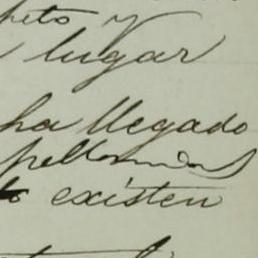 peto y
lugar
ha llegado
existen